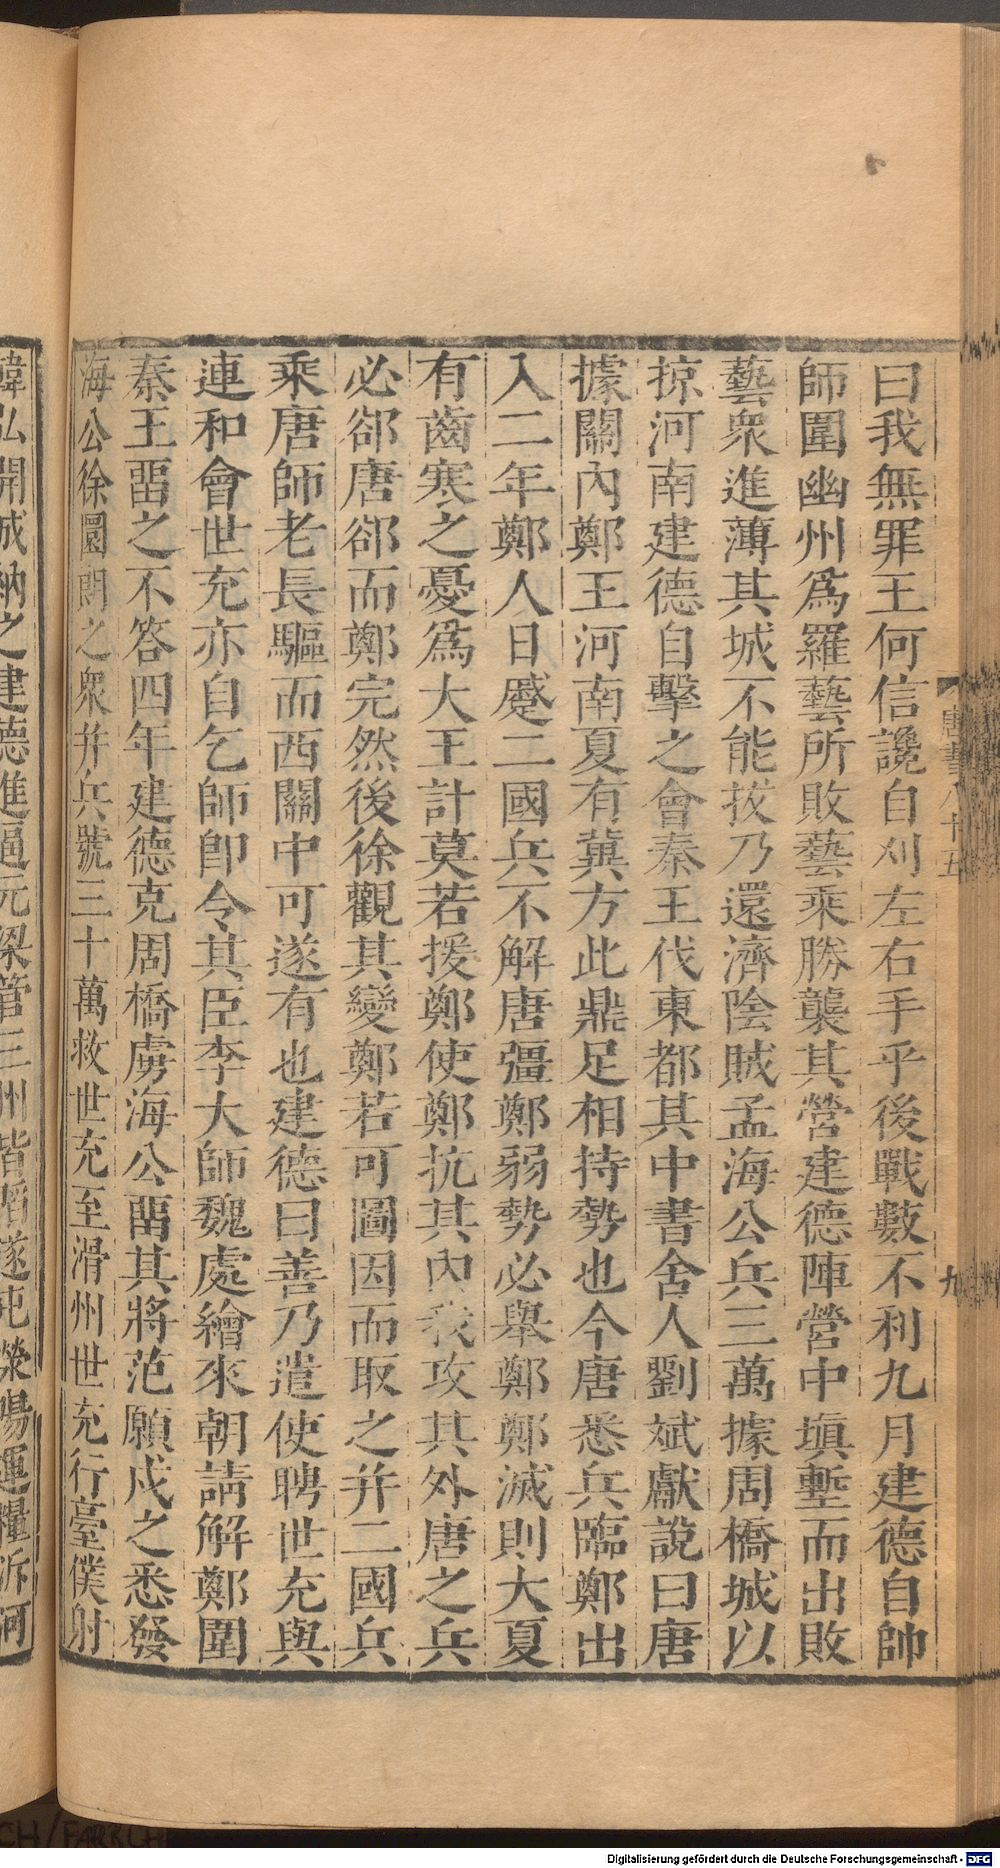 曰我無罪王何信讒自刈左右手乎後戰數不利九月建德自帥
師圍幽州爲羅藝所敗藝乘勝襲其營建德陣營中塡塹而出敗
藝衆進薄其城不能拔乃還濟陰賊孟海公兵三萬據周橋城以
掠河南建德自擊之會秦王伐東都其中書舍人劉斌獻說曰唐
據關內鄭王河南夏有冀方此鼎足相持勢也今唐悉兵臨鄭出
入二年鄭人日蹙二國兵不解唐彊鄭弱勢必舉鄭鄭滅則大夏
有齒寒之憂爲大王計莫若援鄭使鄭抗其內我攻其外唐之兵
必郤唐郤而鄭完然後徐觀其變鄭若可圖因而取之并二國兵
乘唐師老長驅而西關中可遂有也建德曰善乃遣使聘世充與
連和會世充亦自乞師卽令其臣李大師魏處繪來朝請解鄭圍
秦王畱之不答四年建德克周橋虜海公畱其將范願戍之悉發
海公徐圓朗之衆并兵號三十萬救世充至滑州世充行臺僕射
韓弘開城納之建德進逼元梁管三州皆陷遂屯滎陽運糧泝河
唐書八十五
九
Digitalisierung gefördert durch die Deutsche Forschungsgemeinschaft - DFG